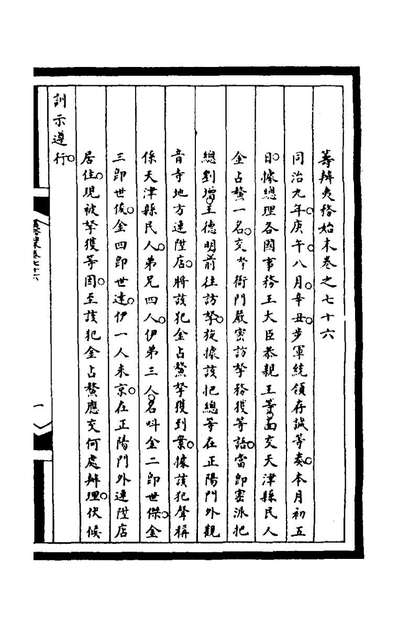 籌辦夷務始末卷之七十六
同治九年庚午八月辛丑步軍統領存誠等奏本月初五
日據總理各國事務王大臣恭親王等面交天津縣民人
金占鰲一名交臣衙門嚴密訪拏務獲等語當即密派把
總劉增王德明前往訪拏旋據該把總等在正陽門外觀
音寺地方連陞店將該犯金占鰲拏獲到案據該犯聲稱
係天津縣民人弟兄四人伊弟三人名叫金二即世傑金
三即世俊金四即世達伊一人來京在正陽門外連陞店
居住現被拏獲等因至該犯金占鰲應交何處辦理伏候
訓示遵行
一